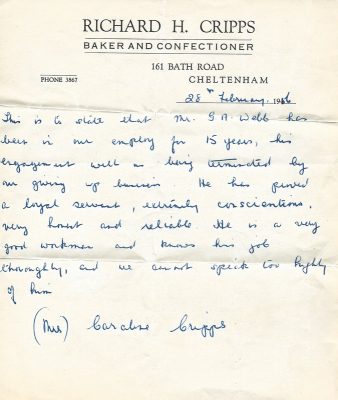 RICHARD H. CRIPPS
BAKER AND CONFECTIONER
161 BATH ROAD
PHONE 3867 CHELTENHAM
28th February, 1956
This is to state that Mr. G A. Webb has
been in our employ for 15 years, his
engagement with us being terminated by
our giving up business. He has proved
a loyal servant, extremely conscientious,
very honest and reliable. He is a very
good workman and knows his job
thoroughly, and we cannot speak too highly
of him
(Mrs) Caroline Cripps